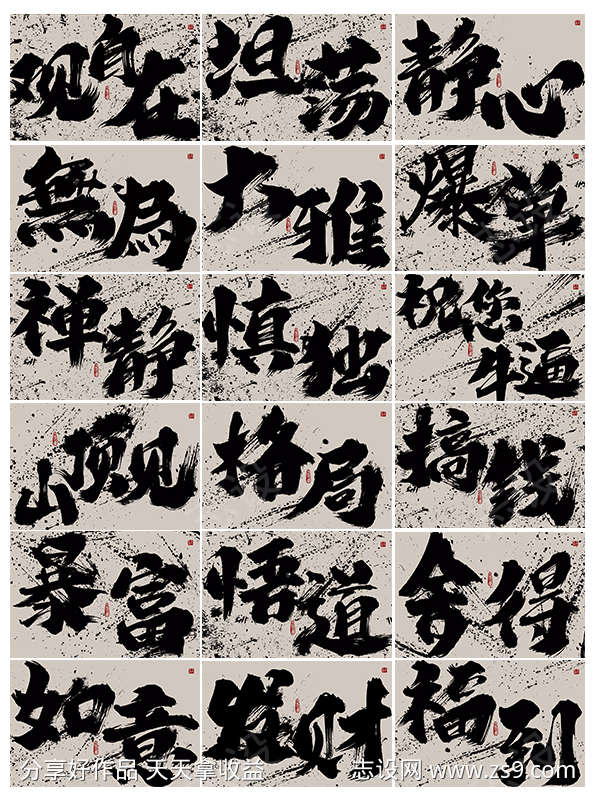 观自在
坦荡
静心
無為
大雅
爆单
禅静
慎独
祝您牛逼
山顶见
格局
搞钱
暴富
悟道
舍得
如意
发财
福到
分享好作品 天天拿收益
志设网 www.zs9.com